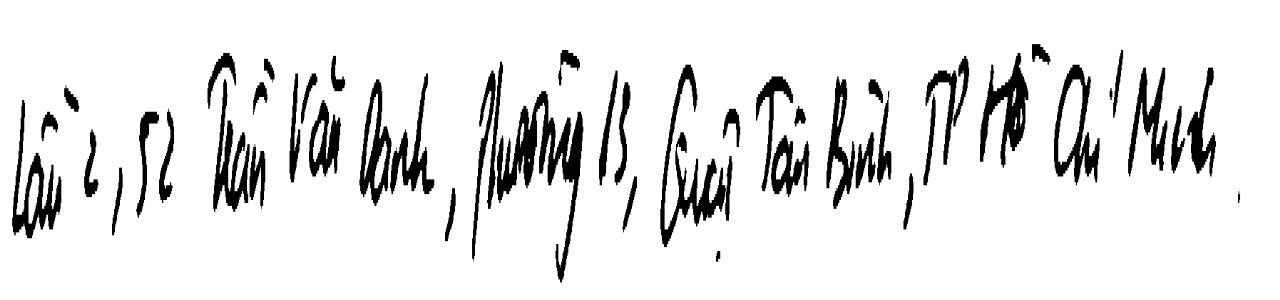 Lầu 2, 52 Trần Văn Danh, Phường 13, Quận Tân Bình, TP Hồ Chí Minh